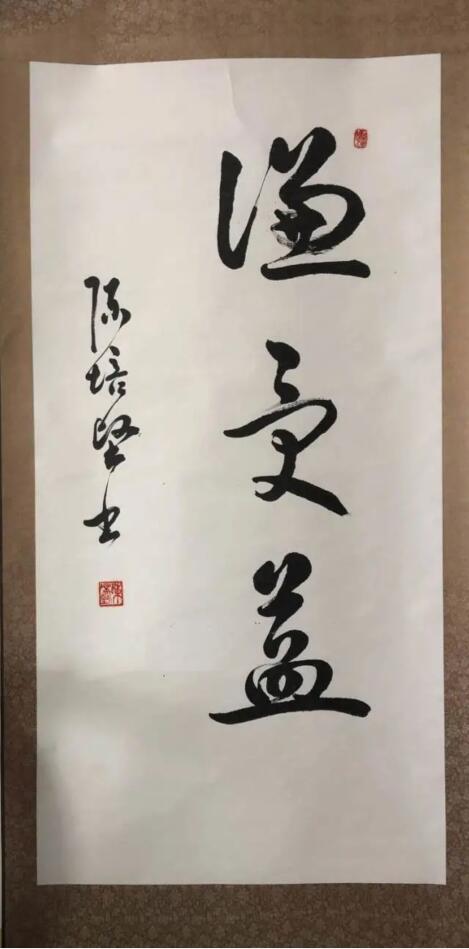 谦受益
陈培坚书